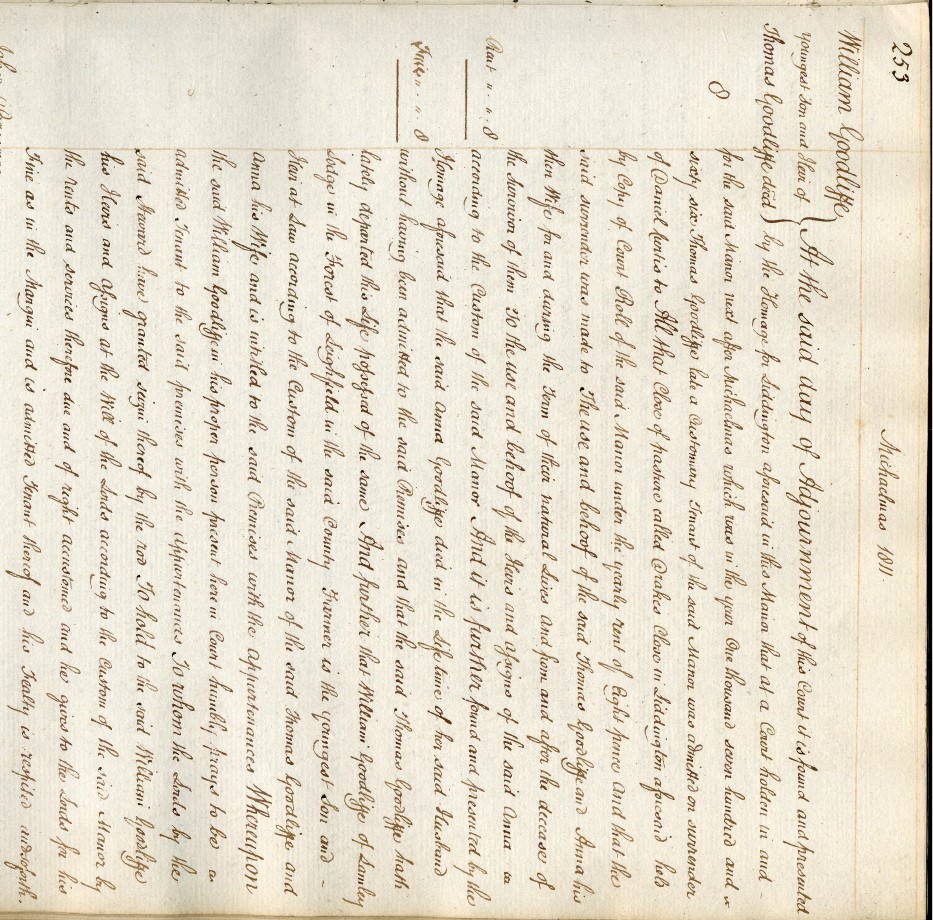 253
Michaelmas 1811.
William Goodliffe
youngest Son and Heir of
Thomas Goodliffe died
8
Rent " . " . 8
Fine " . " . 8
At the said day of Adjournment of this Court it is found and presented
by the Homage for Liddington aforesaid in this Manor that at a Court holden in and
for the said Manor next after Michaelmas which was in the year One thousand seven hundred and
sixty six Thomas Goodliffe late a Customary Tenant of the said Manor was admitted on surrender
of Daniel Curtis to All that Close of pasture called Drakes Close in Liddington aforesaid held
by Copy of Court Roll of the said Manor under the yearly rent of Eight pence and that the
said surrender was made to The use and behoof of the said Thomas Goodliffe and Anna his
then Wife for and during the Term of their natural Lives and from and after the decease of
the survivor of them To the use and behoof of the Heirs and assigns of the said Anna
according to the Custom of the said Manor And it is further found and presented by the
Homage aforesaid that the said Anna Goodliffe died in the Life time of her said Husband
without having been admitted to the said Premises and that the said Thomas Goodliffe hath
lately departed his Life possessed of the same And further that William Goodliffe of Lambley
Lodge in the Forest of Leighfield in the said County Farmer is the youngest Son and
Heir at Law according to the Custom of the said Manor of the said Thomas Goodliffe and
Anna his Wife and is intitled to the said Premises with the appurtenances Whereupon
the said William Goodliffe in his proper person present here in Court humbly prays to be
admitted Tenant to the said premises with the appurtenances To whom the Lords by the
said Steward have granted seizin thereof by the rod To hold to the said William Goodliffe
his Heirs and assigns at the Will of the Lords according to the Custom of the said Manor by
the rents and services therefore due and of right accustomed and he gives to the Lords for his
Fine as in the Margin and is admitted Tenant thereof and his Fealty is respited and so forth.